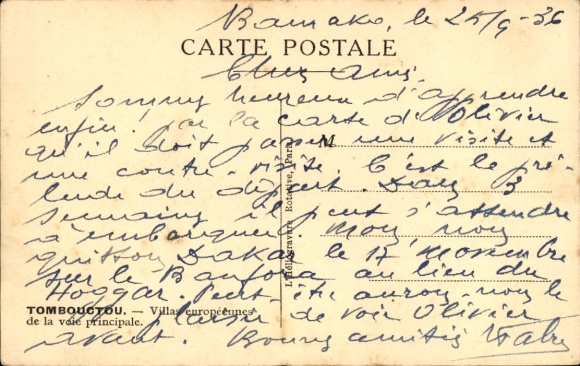 Bamako, le 25/9-36
CARTE POSTALE
Chers amis,
Sommes heureux d'apprendre
enfin par la carte d'Olivier
qu'il doit passer une visite et
M
une contre-visite. C'est le pré-
lude du départ. Dans 3
semaines il peut s'attendre
à embarquer. Nous nous
quittons Dakar le 17 Novembre
sur le Banfora au lieu du
Hoggar. Peut-être aurons-nous le
plaisir de voir Olivier
avant. Bonnes amitiés
L'Héliogravure Rotative, Paris
TOMBOUCTOU. — Villas européennes
de la voie principale.